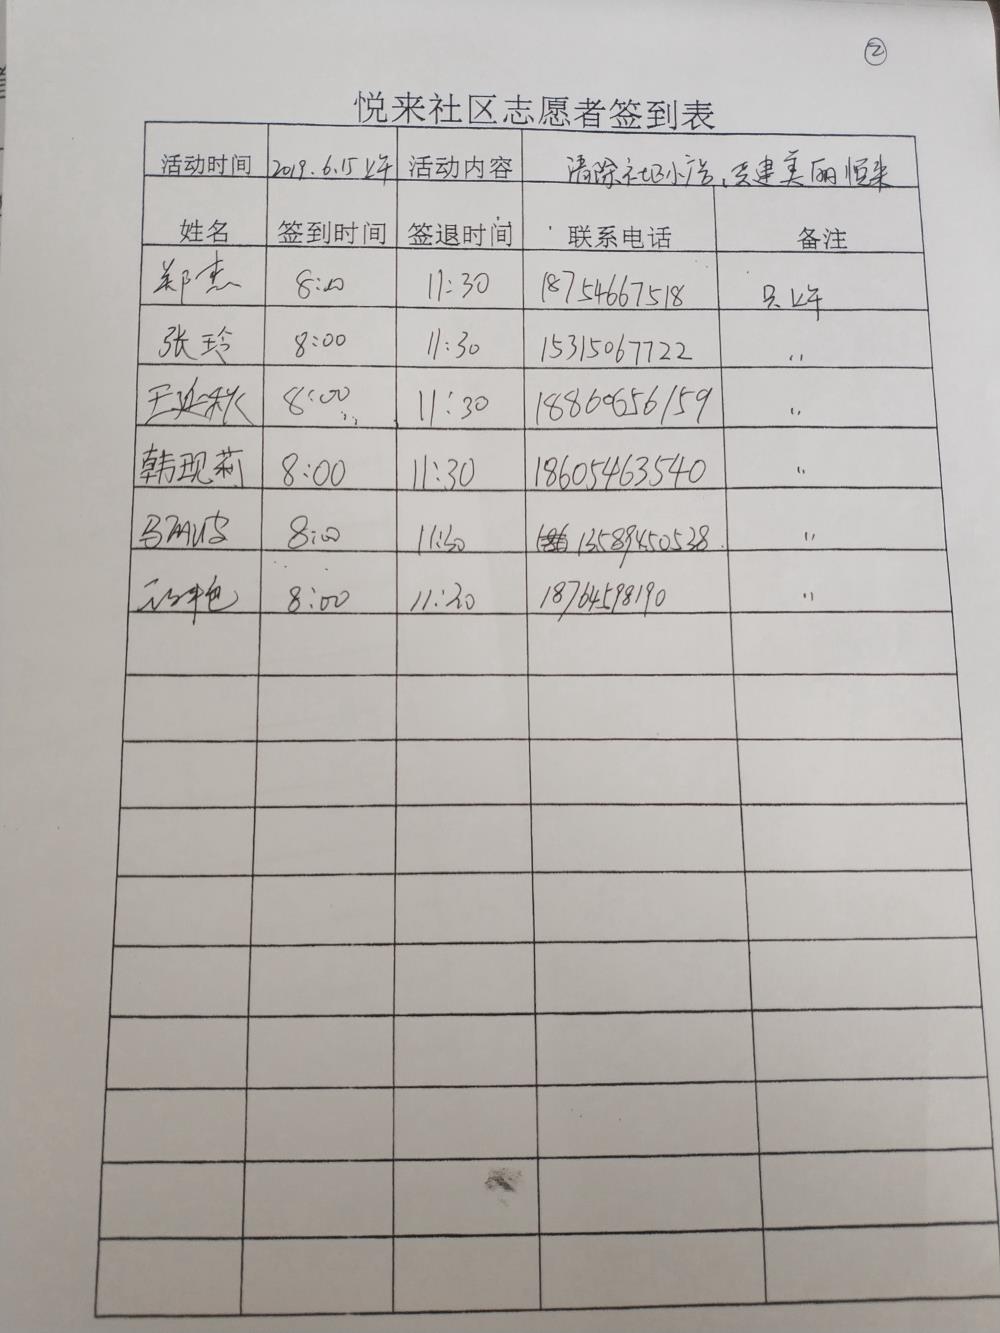 ②
悦来社区志愿者签到表
活动时间 2019.6.15上午 活动内容 清除社区小广告,共建美丽悦来
姓名 签到时间 签退时间 联系电话 备注
郑杰 8:00 11:30 18754667518 只上午
张玲 8:00 11:30 15315067722 〃
王延秋 8:00 11:30 18860656159 〃
韩现莉 8:00 11:30 18605463540 〃
8:00 11:30 13589450538 〃
8:00 11:30 18764598190 〃